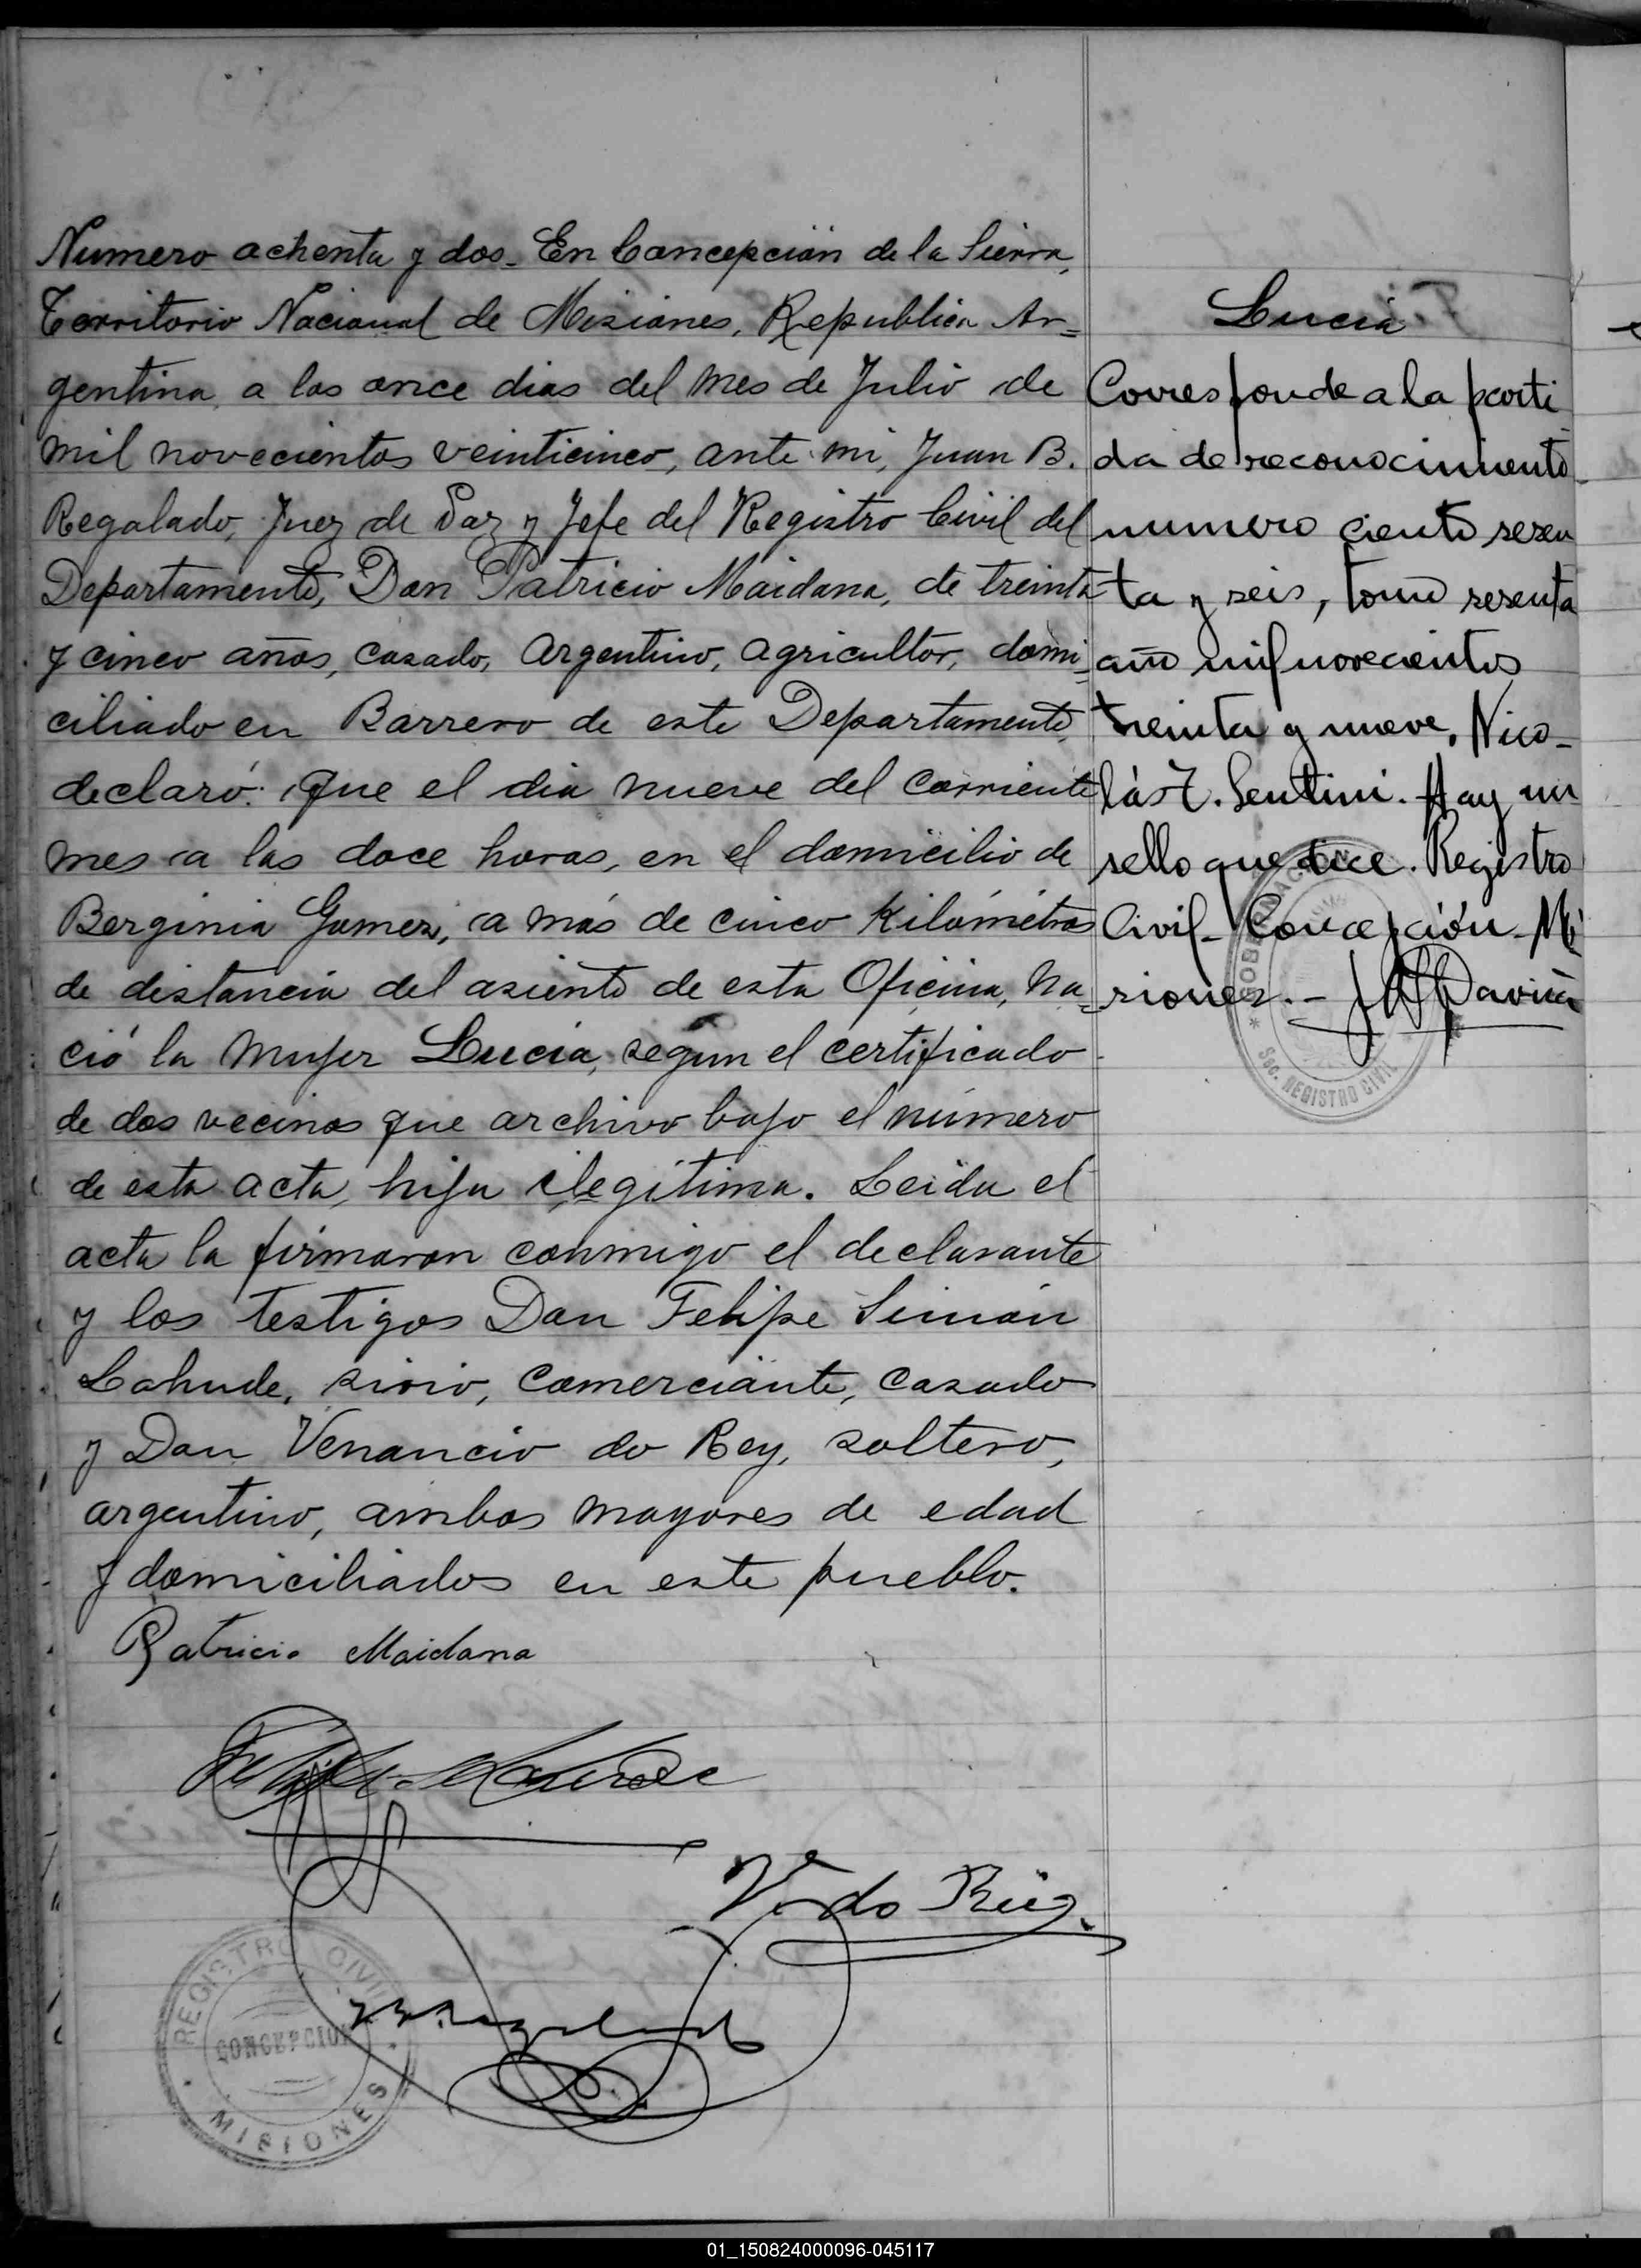 Numero ochenta y dos_ En Concepción de la Sierra,
Territorio Nacional de Misiones, Republica Ar=
gentina, a los once dias del mes de Julio de
mil novecientos veinticinco, ante mi, Juan B.
Regalado, Juez de Paz y Jefe del Registro Civil del
Departamento, Don Patricio Maidana, de treinta
y cinco años, casado, Argentino, agricultor, domi=
ciliado en Barrero de este Departamento,
declaró: Que el dia nueve del corriente
mes a las doce horas, en el domicilio de
Berginia Gomez, a más de cinco kilómetros
de distancia del asiento de esta Oficina, na=
ció la mujer Lucia, segun el certificado
de dos vecinos que archivo bajo el número
de esta acta, hija ilegítima. Leida el
acta la firmaron conmigo el declarante
y los testigos Don Felipe Simón
Lahude, sirio, comerciante, casado
y Don Venancio do Rey, soltero,
argentino, ambos mayores de edad
y domiciliados en este pueblo.
Patricio Maidana
V. do Rey.
REGISTRO CIVIL
CONCEPCION
MISIONES
Lucia
Corresponde a la parti
da de reconocimiento
numero ciento sesen
ta y seis, tomo sesenta
año mil novecientos
treinta y nueve. Nico-
lás T. Sentini. Hay un
sello que dice. Registro
Civil_ Concepción_ Mi
siones.-
SEC. REGISTRO CIVIL
01_150824000096-045117